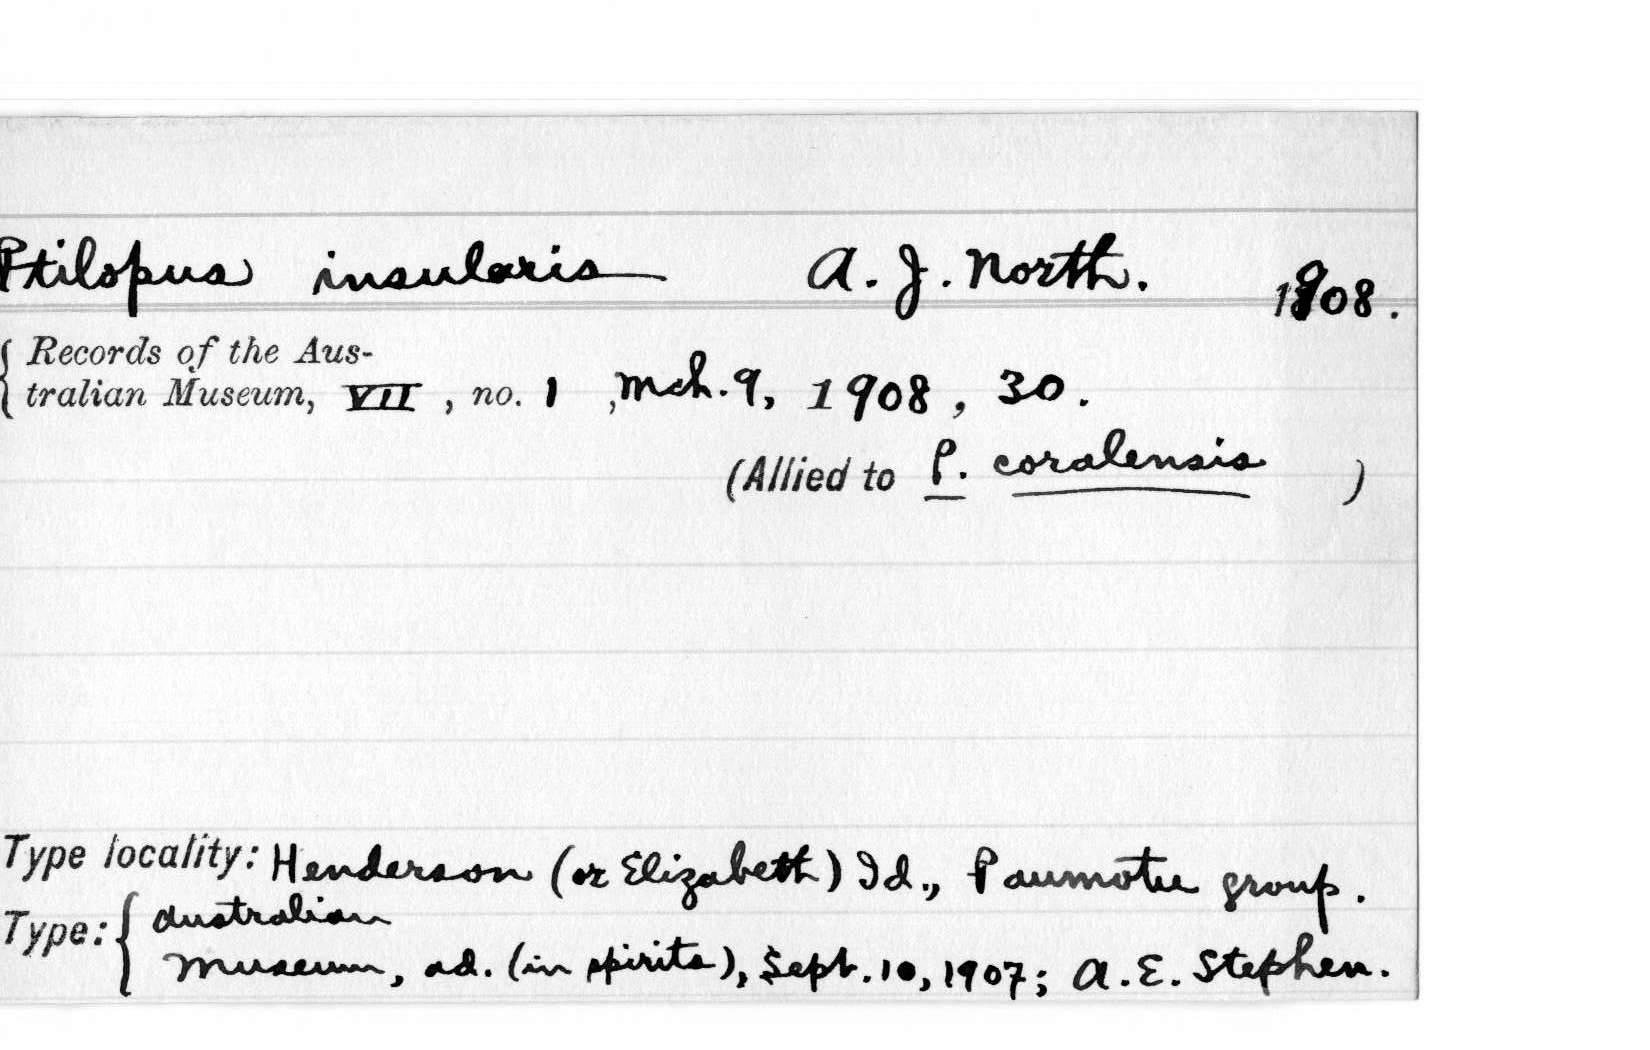 Ptilopus insularis A. J. North. 1908.
Records of the Aus-
tralian Museum, VII, no. 1, Mch. 9, 1908, 30.
(Allied to P. coralensis )
Type locality: Henderson (or Elizabeth) Id., Paumotu group.
Type: { Australian
Museum, ad. (in spirits), Sept. 10, 1907; A. E. Stephen.